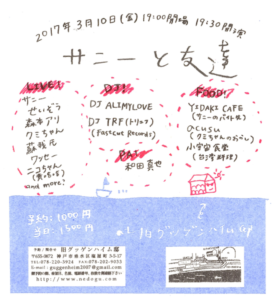 2017年3月10日(金) 19:00開場 19:30開演
サニーと友達
LIVE!
サニー
ぜいぞう
森本アリ
クミちゃん
蘇我凡
ワッセー
ニコちゃん
and more!
DJ
DJ ALIMYLOVE
DJ TRF(トリフ)
(Fastcut Records)
和田真也
FOOD!
YEDAKI CAFE
(サニーのバイト先)
(クミちゃんのおべん)
小宇宙食堂
予約:1000円
当日:1500円
at 旧グッゲンハイム邸
予約/問合せ 旧グッゲンハイム邸
〒655-0872 神戸市垂水区塩屋町3-5-17
TEL:078-220-3924 FAX:078-202-9033
E-mail: guggenheim2007@gmail.com
http://www.nedogu.com